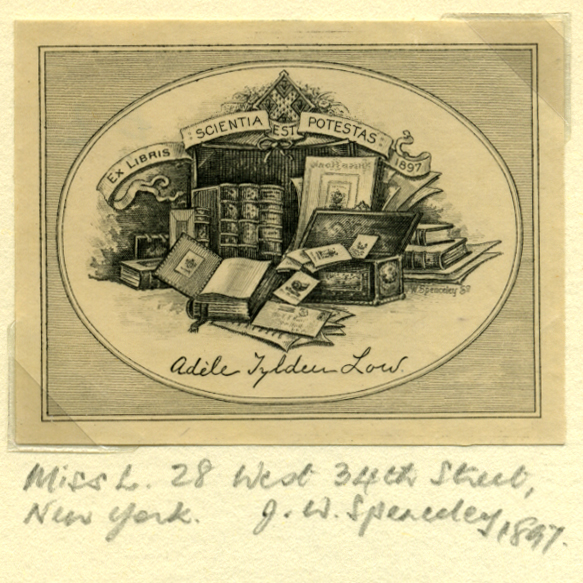 EX LIBRIS
SCIENTIA EST POTESTAS
1897
J.W. Spenceley Sc
Adèle Tylden Low.
Miss L. 28 West 34th Street,
New York. J. W. Spenceley, 1897.